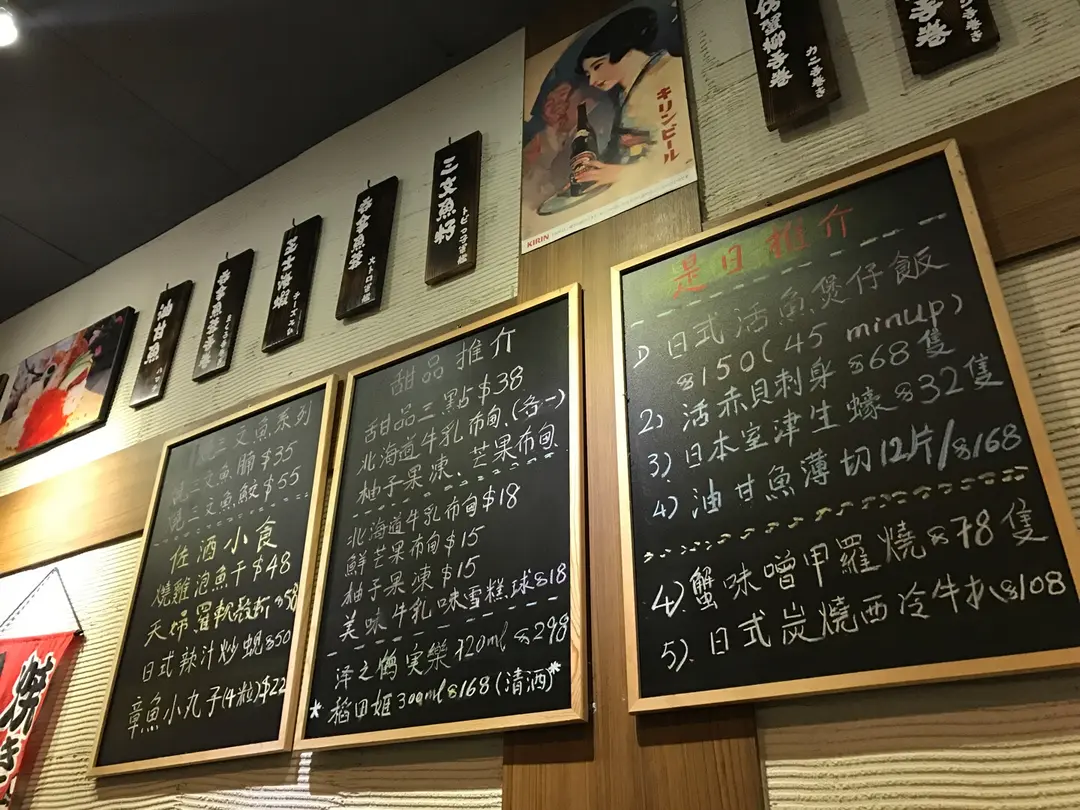 三文魚籽
トビっ子軍艦
吞拿魚蓉
大トロ軍艦
芝士海蝦
チーズえび
油甘魚
キリンビール
KIRIN
三文魚系列
燒三文魚腩$35
燒三文魚鮫$55
佐酒小食
燒雞泡魚干$48
天婦羅軟殼蟹$58
日式辣汁炒蜆$50
章魚小丸子(4粒)$22
甜品推介
甜品三點$38
北海道牛乳布甸、(各一)
柚子果凍、芒果布甸
北海道牛乳布甸$18
鮮芒果布甸$15
柚子果凍$15
美味牛乳味雪糕球$18
泽之鹤実樂720ml $298
*稻田姬300ml$168(清酒)*
是日推介
1) 日式活魚煲仔飯
$150(45 minup)
2) 活赤貝刺身$68隻
3) 日本室津生蠔$32隻
4) 油甘魚薄切12片/$168
4) 蟹味噌甲羅燒$78隻
5) 日式炭燒西冷牛扒$108
焼き